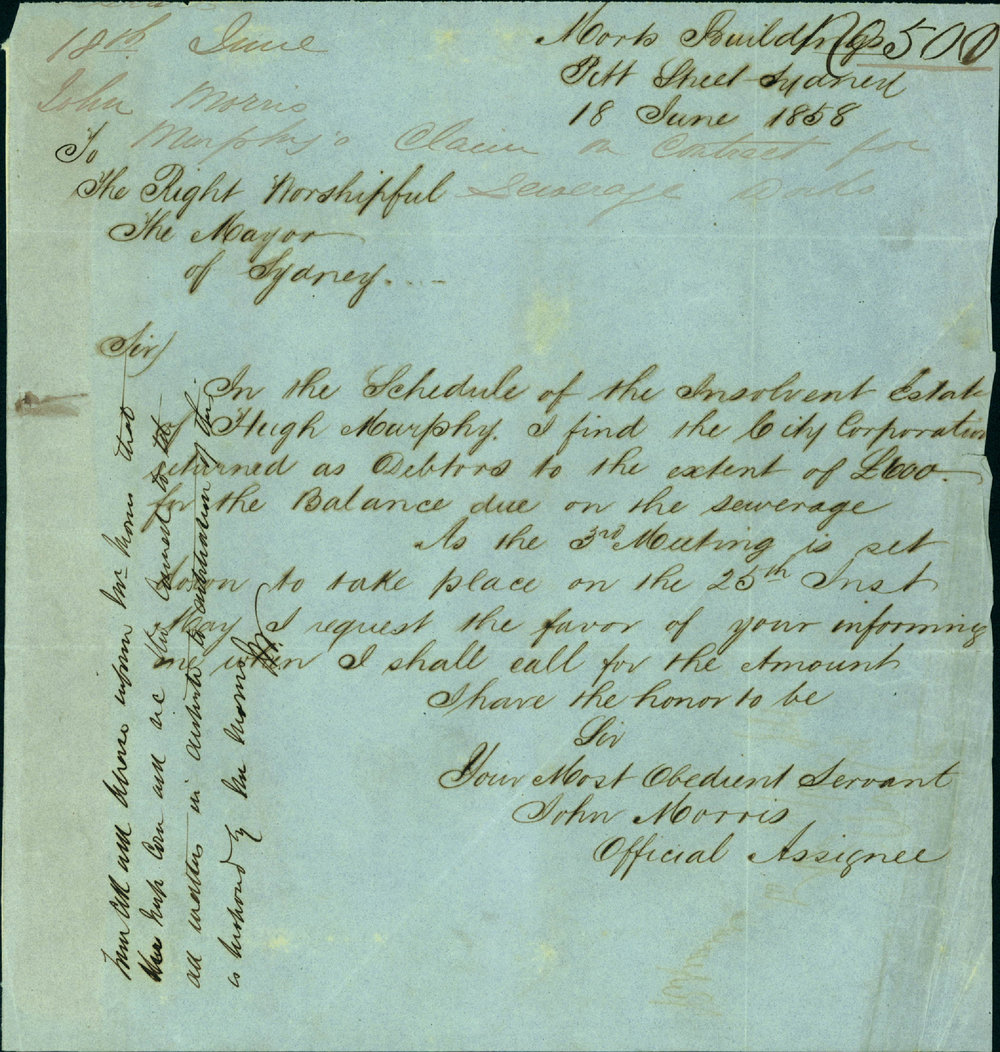 18th June
John Morris
Murphy's Claim on Contract for
Sewerage
No 500
Morts Buildings
Pitt Street Sydney
18 June 1858
To
The Right Worshipful
The Mayor
of Sydney.
Sir,
In the Schedule of the Insolvent Estate
of Hugh Murphy. I find the City Corporation
returned as Debtors to the extent of £600.
for the Balance due on the sewerage
As the 3rd Meeting is set
down to take place on the 25th Inst
May I request the favor of your informing
me when I shall call for the Amount
I have the honor to be
Sir
Your Most Obedient Servant
John Morris
Official Assignee
inform Mr Morris that
and the Council to the
all matters in to arbitration if this
is by Mr Morris